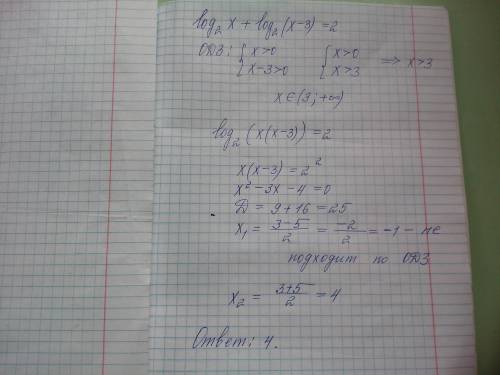 log₂ x + log₂ (x-3) = 2
ОДЗ: { x>0 { x>0 => x>3
{ x-3>0 { x>3
x ∈ (3; +∞)
log₂ (x(x-3)) = 2
x(x-3) = 2²
x² - 3x - 4 = 0
D = 9 + 16 = 25
x₁ = (3-5)/2 = -2/2 = -1 - не
подходит по ОДЗ
x₂ = (3+5)/2 = 4
Ответ: 4.